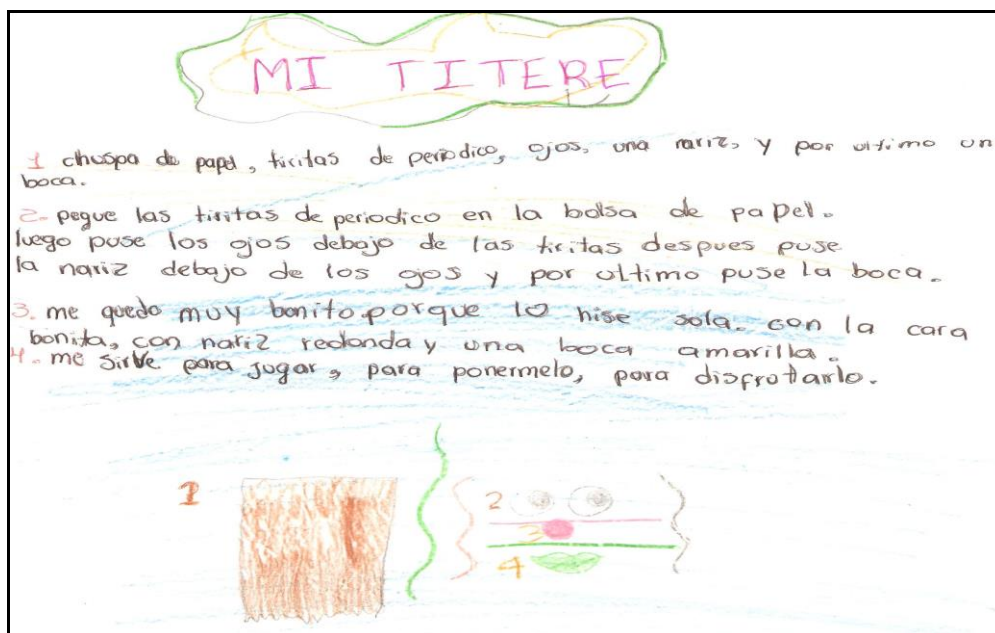 MI TITERE
1 chuspa de papel, tiritas de periodico, ojos, una nariz, y por ultimo un
boca.
2- pegue las tiritas de periodico en la bolsa de papel.
luego puse los ojos debajo de las tiritas despues puse
la nariz debajo de los ojos y por ultimo puse la boca.
3. me quedo muy bonito porque lo hise sola. con la cara
bonita, con nariz redonda y una boca amarilla.
4. me sirve para jugar, para ponermelo, para disfrutarlo.
1
2
3
4